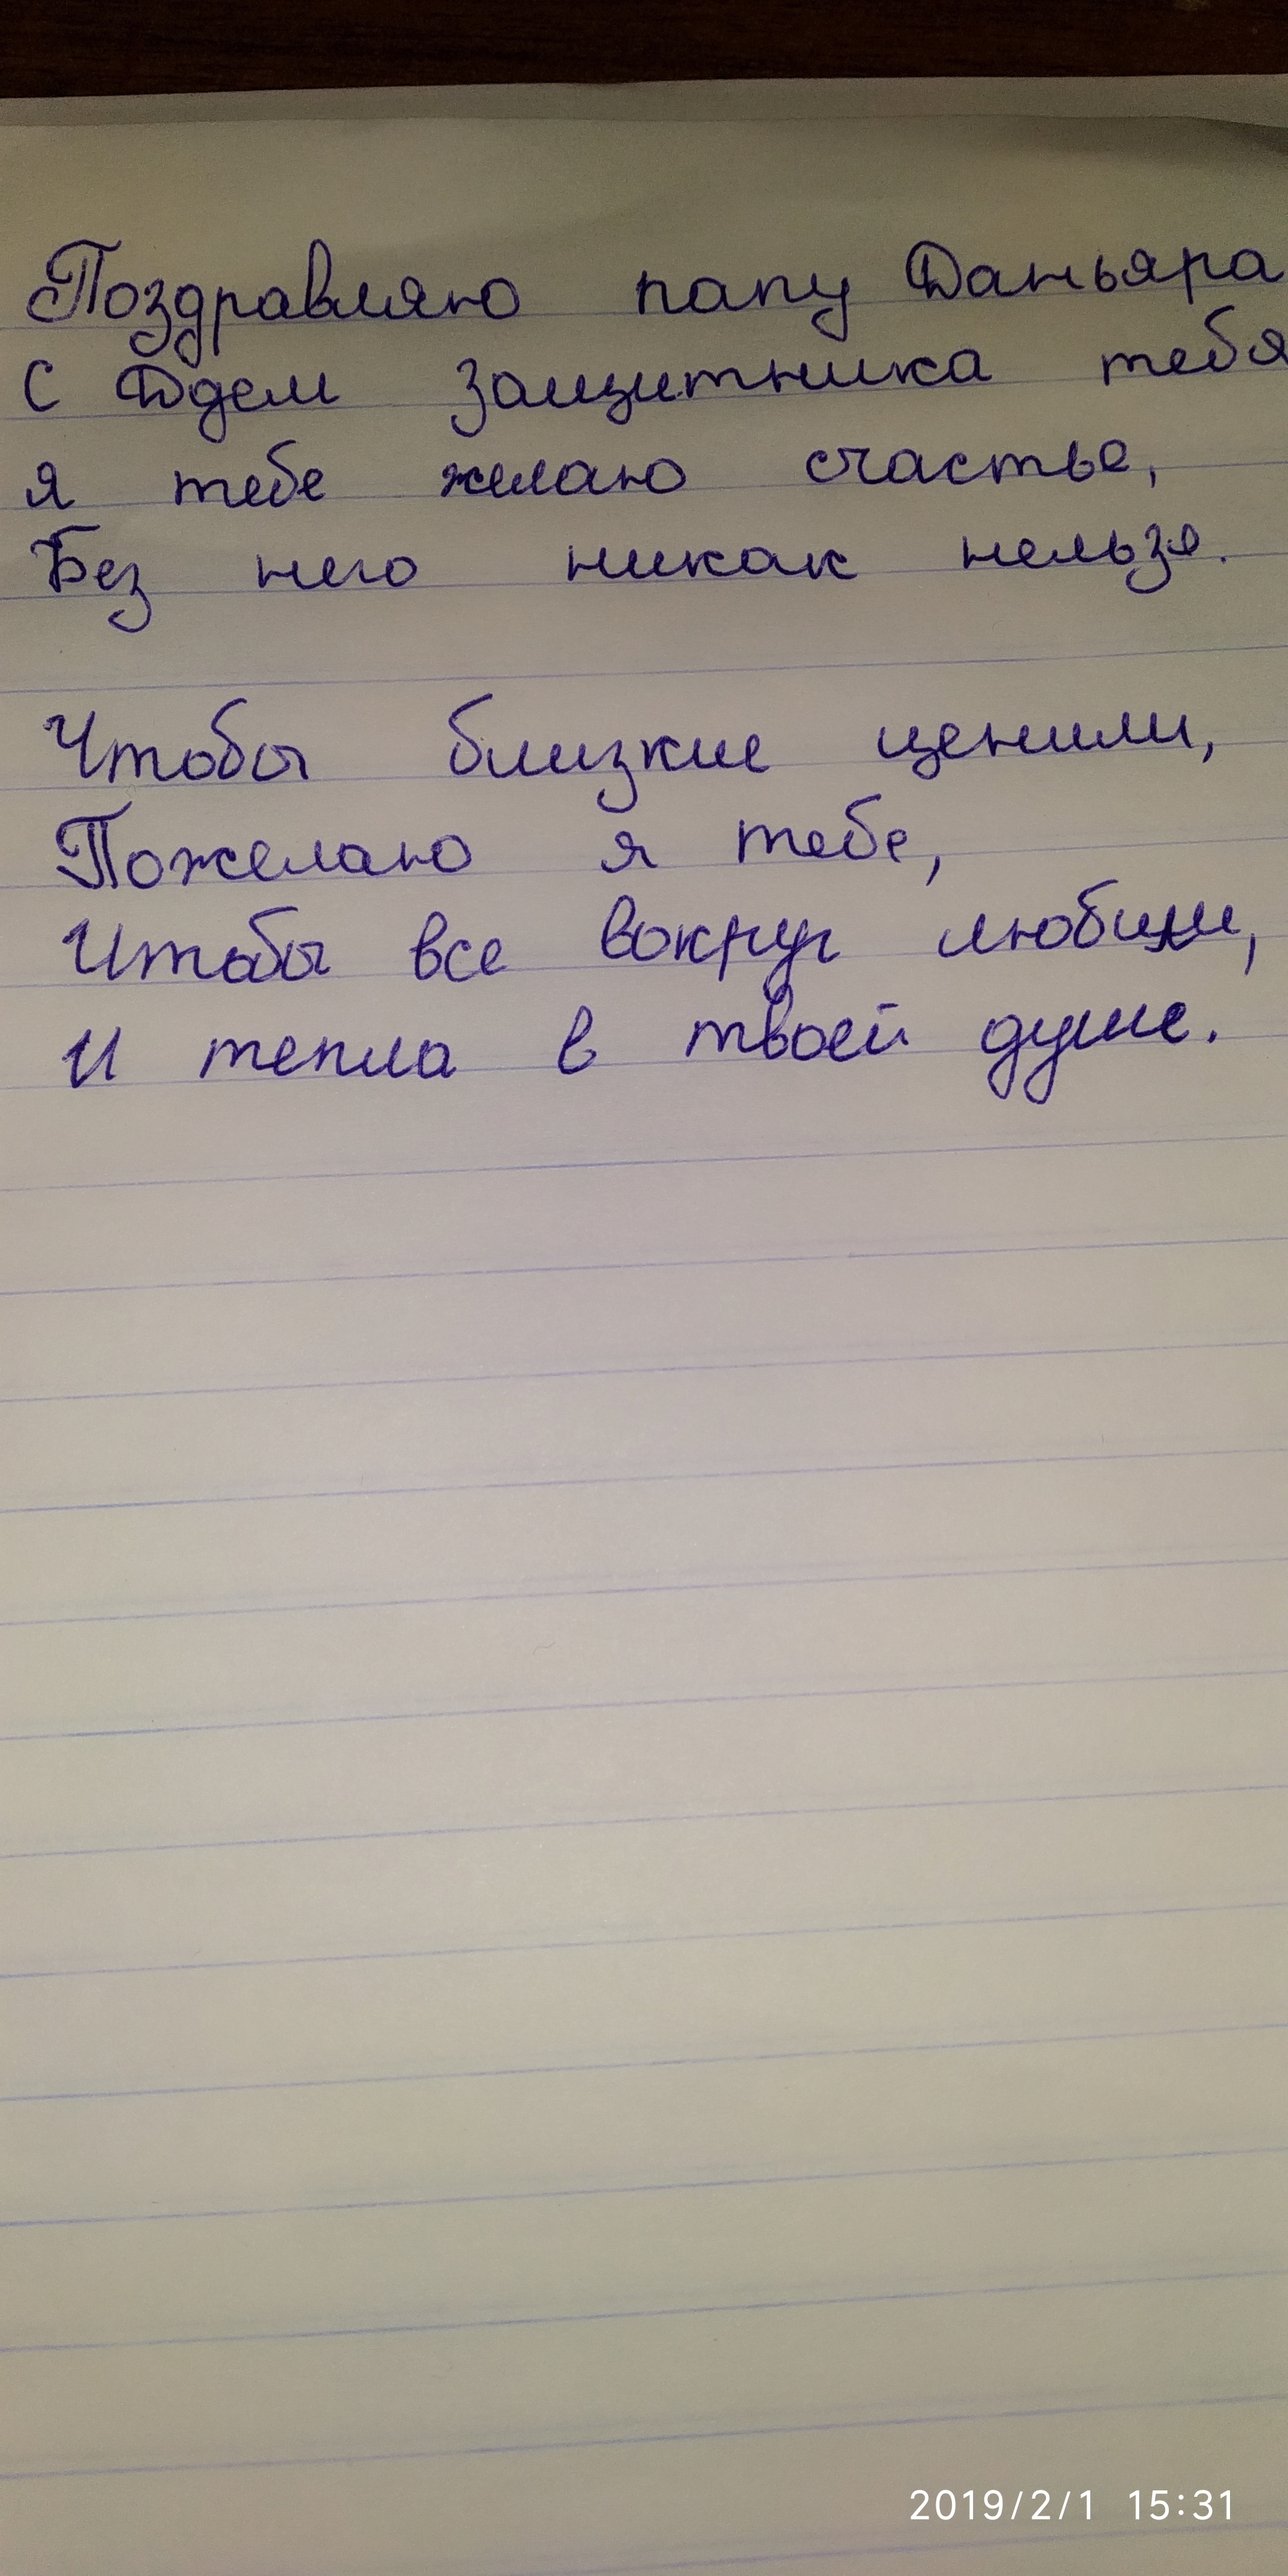 Поздравляю папу Даньяра
С Ддем защитника тебя
я тебе желаю счастье,
Без него никак нельзя.
Чтобы близкие ценили,
Пожелаю я тебе,
Чтобы все вокруг любили,
И тепла в твоей душе.
2019/2/1 15:31